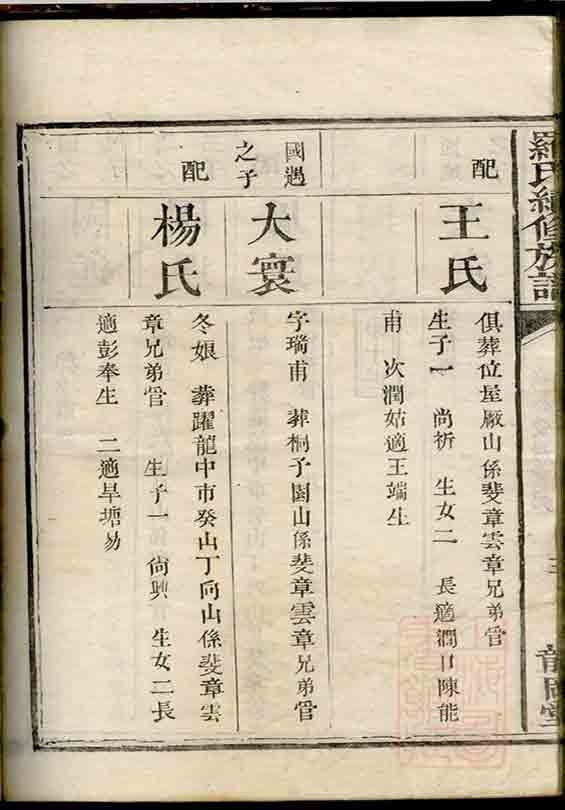 羅氏續修族譜
配
王氏
俱葬位屋廠山係斐章雲章兄弟管
生子一 尚祈 生女二 長適澗口陳能
甫 次潤姑適王端生
國遇
之子
大寰
字瑞甫 葬桐子園山係斐章雲章兄弟管
配
楊氏
冬娘 葬躍龍中市癸山丁向山係斐章雲
章兄弟管 生子一 尙興 生女二長
適彭奉生 二適旱塘易